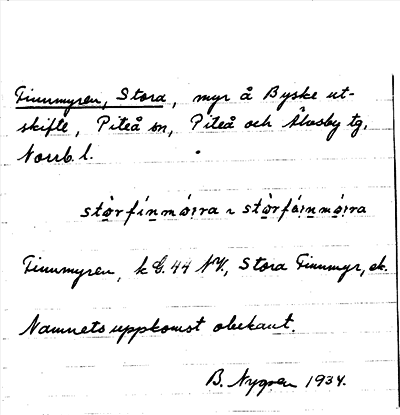 Finnmyren, Stora, myr å Byske ut-
skifte, Piteå sn, Piteå och Älvsby tg,
Norrb. l.
Finnmyren, k G. 44 NV., Stora Finnmyr, ek.
Namnets uppkomst obekant.
B. Nygren 1934.